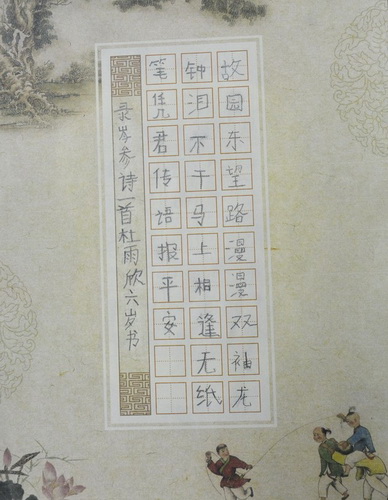 故园东望路漫漫双袖龙
钟泪不干马上相逢无纸
笔凭君传语报平安
录岑参诗一首杜雨欣六岁书